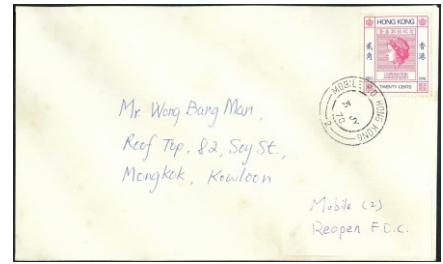 HONG KONG
貳角
香港
TWENTY CENTS
MOBILE P.O HONG KONG
2
JY
70
Mr Wong Bang Man,
Roof Top, 82, Soy St.,
Mongkok, Kowloon
Mobile (2)
Reopen F.D.C.